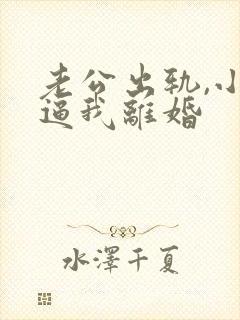 老公出轨,小
逼我離婚
水澤千夏